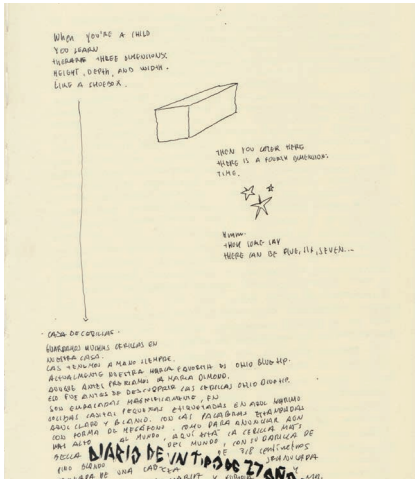 When you're a child
you learn
there are three dimensions:
height, depth, and width.
like a shoebox.
then you later hear
there is a fourth dimension:
time.
Hmm.
then some say
there can be five, six, seven...
- casa de cerillas -
guardamos muchas cerillas en
nuestra casa.
las tenemos a mano siempre.
actualmente nuestra marca favorita es ohio blue tip.
aunque antes preferíamos la marca diamond.
eso fue antes de descubrir las cerillas ohio blue tip.
son empaquetadas, en
sólidas cajitas pequeñas etiquetadas en azul marino
azul claro y blanco. con las palabras estampadas
con forma de megáfono. como para anunciar aún
más alto al mundo, aquí está la cerilla más
bella del mundo, con
pino blando
DIARIO DE UN TIPO DE 27 AÑO
de una cabeza